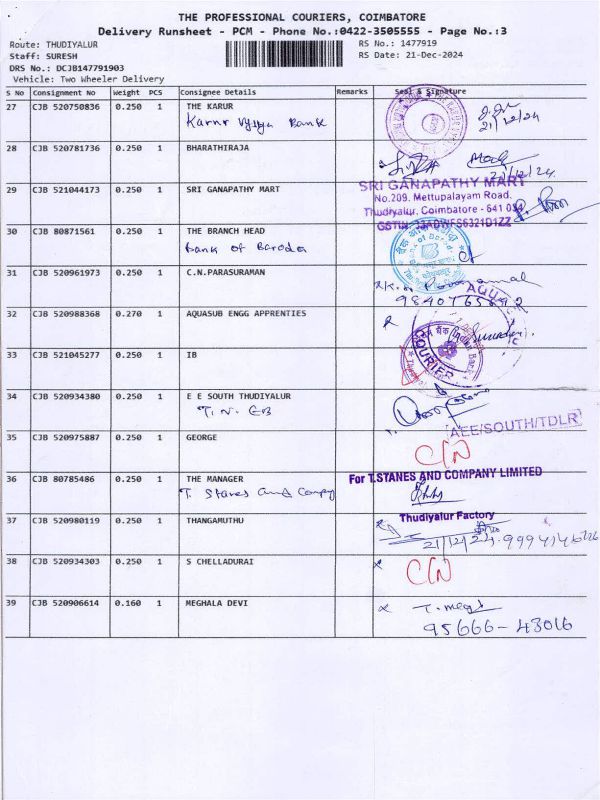 THE PROFESSIONAL COURIERS, COIMBATORE
Delivery Runsheet - PCM - Phone No.:0422-3505555 - Page No.:3
Route: THUDIYALUR
RS No.: 1477919
Staff: SURESH
RS Date: 21-Dec-2024
DRS No.: DCJB147791903
Vehicle: Two Wheeler Delivery
S No Consignment No Weight PCS Consignee Details Remarks Seal & Signature
27 CJB 520750836 0.250 1 THE KARUR
Karur Vysya Bank
21/12/24
28 CJB 520781736 0.250 1 BHARATHIRAJA
21/12/24
29 CJB 521044173 0.250 1 SRI GANAPATHY MART
SRI GANAPATHY MART
No.209, Mettupalayam Road,
Thudiyalur, Coimbatore - 641 034
GSTIN
30 CJB 80871561 1 THE BRANCH HEAD
0.250
Bank of Baroda
31 CJB 520961973 0.250 1 C.N.PARASURAMAN
32 CJB 520988368 0.270 1 AQUASUB ENGG APPRENTIES
AQUA
33 CJB 521045277 0.250 1 IB
COURIER
34 CJB 520934380 0.250 1 E E SOUTH THUDIYALUR
T. N. EB
AEE/SOUTH/TDLR
35 CJB 520975887 0.250 1 GEORGE
C/N
36 CJB 80785486 0.250 1 THE MANAGER
T Stanes and Company
For T.STANES AND COMPANY LIMITED
Thudiyalur Factory
37 CJB 520980119 0.250 1 THANGAMUTHU
21/12/24.
38 CJB 520934303 0.250 1 S CHELLADURAI
C/N
39 CJB 520906614 0.160 1 MEGHALA DEVI
95666-43016